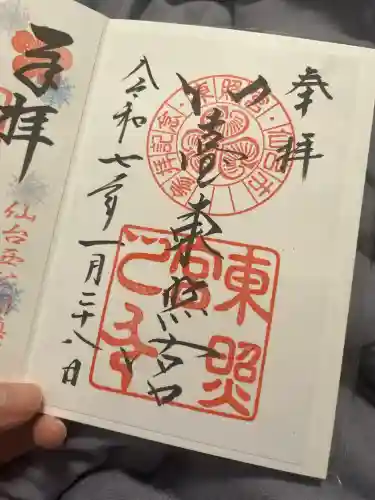 奉拝
仙臺東照宮
令和七年一月二十八日
東照宮
仙台市
参拝記念
東照
宮
奉拝
仙台